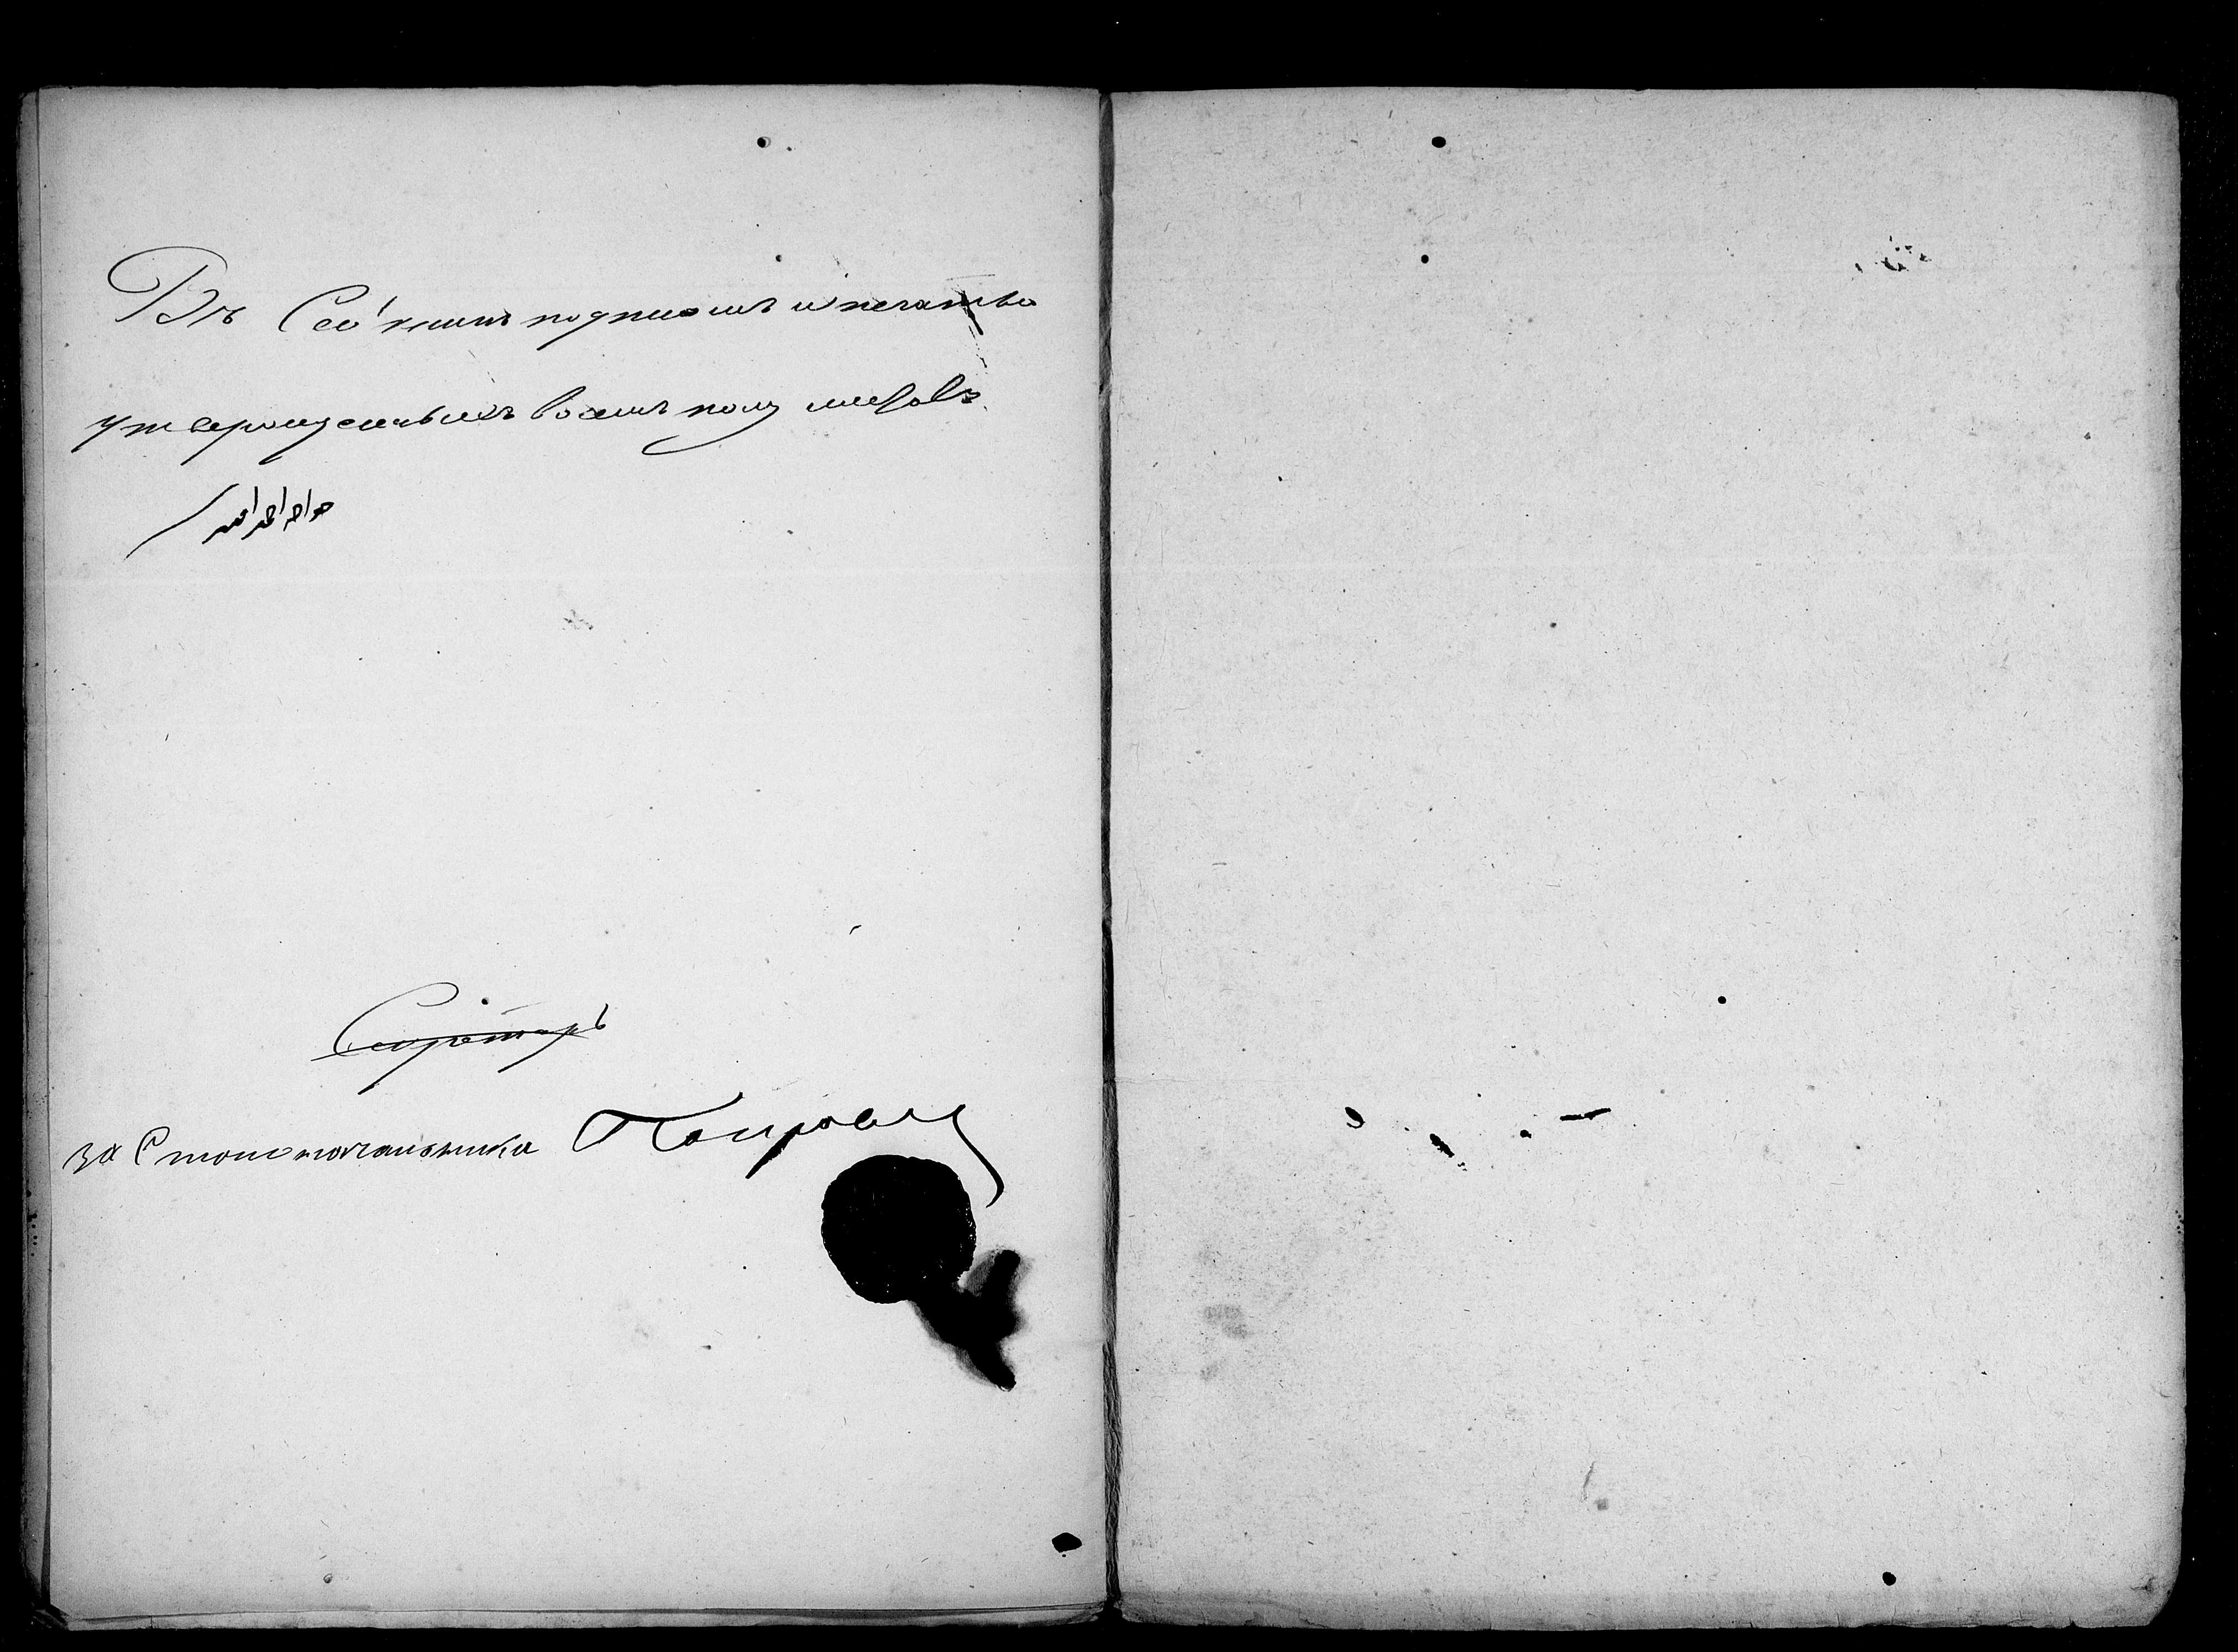 Въ Сей книгѣ подписомъ и печатью
утвержденныхъ восемь полулистовъ
Секретарь
За Столоначальника Покровск